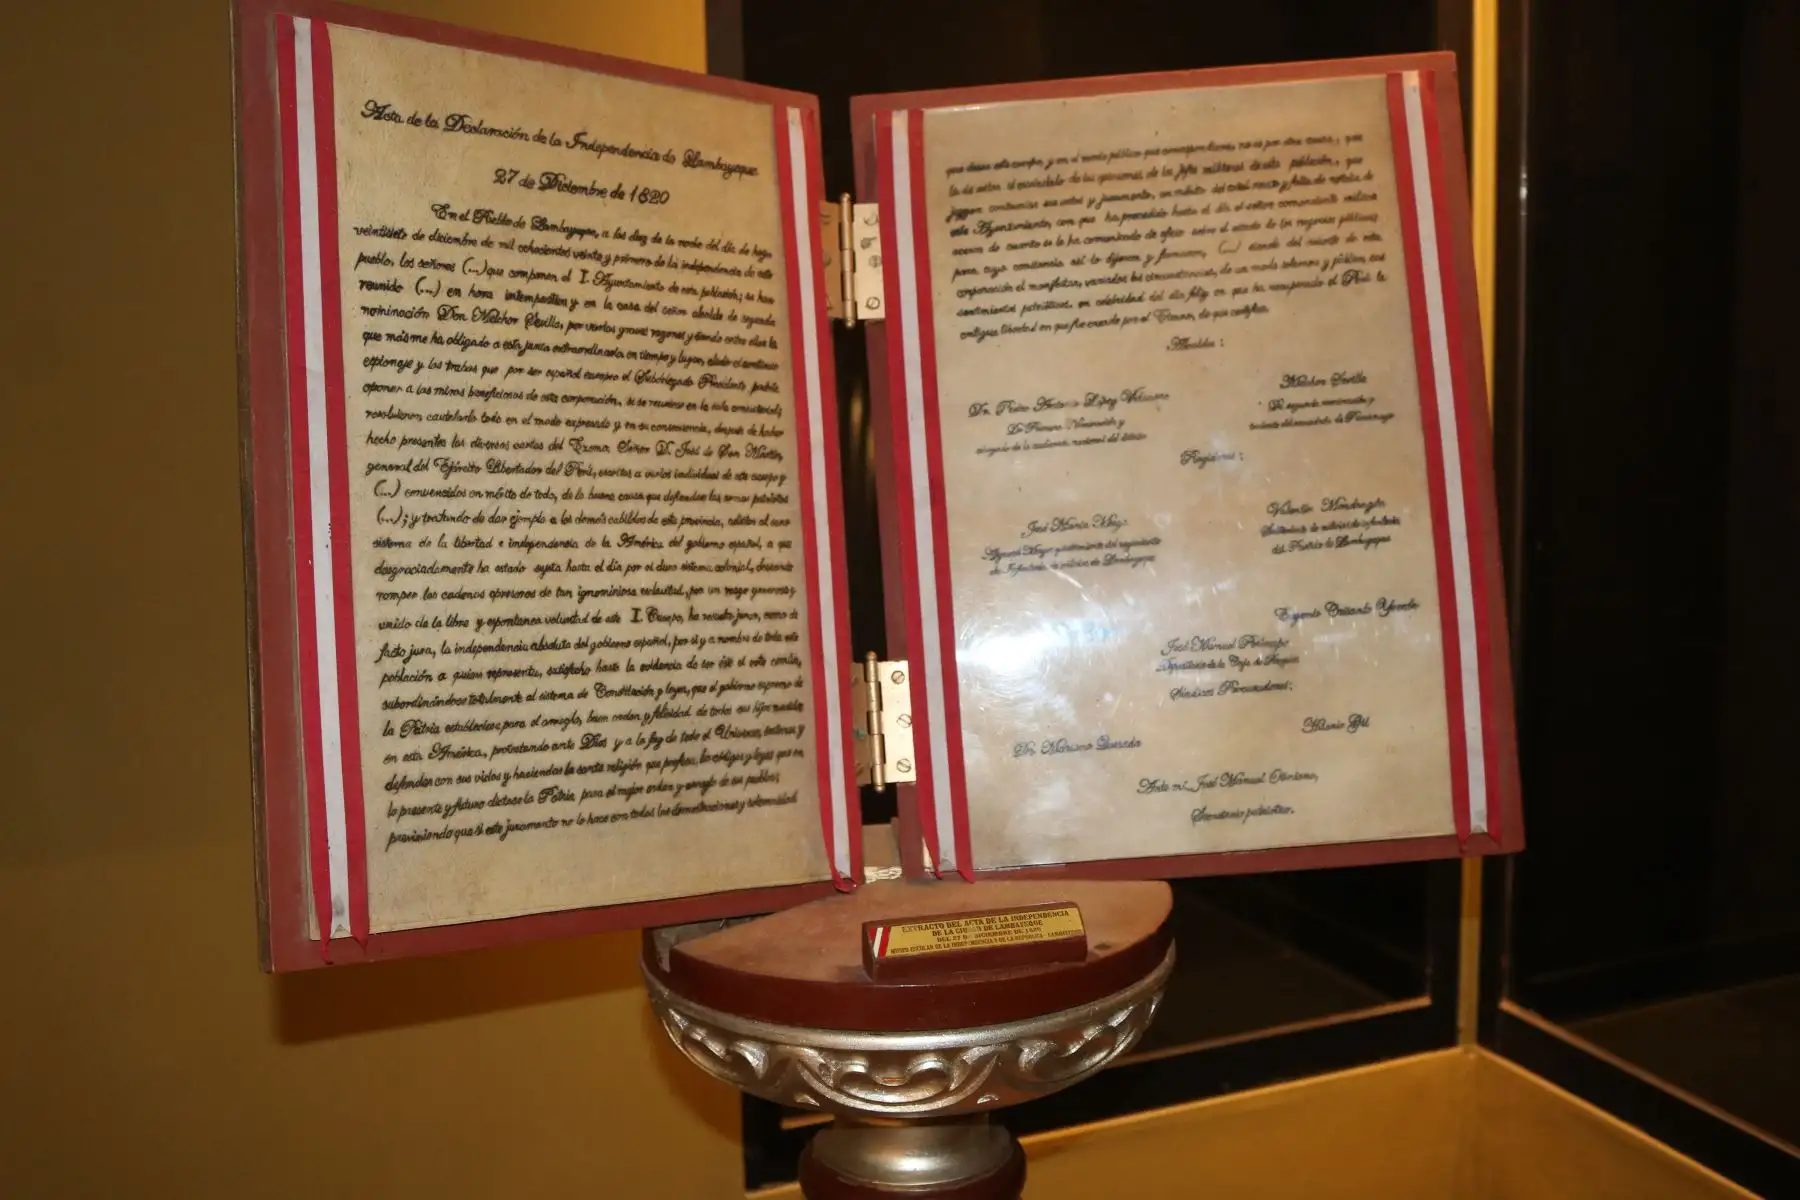 Acta de la Declaración de la Independencia de Lambayeque
27 de Diciembre de 1820
En el Pueblo de Lambayeque, a las diez de la noche del día de hoy
veintisiete de diciembre de mil ochocientos veinte y primero de la independencia de este
pueblo, los señores (...) que componen el I. Ayuntamiento de esta población; se han
reunido (...) en hora intempestiva y en la casa del señor alcalde de segunda
nominación Don Melchor Sevilla, por varias graves razones y siendo entre ellas la
que más me ha obligado a esta junta extraordinaria en tiempo y lugar, eludir el continuo
espionaje y las trabas que por ser español europeo el Subdelegado Presidente podría
oponer a las miras beneficiosas de esta corporación, si se reuniese en la sala consistorial;
resolvieron cautelarlo todo en el modo expresado y en su consecuencia, después de haber
hecho presentes las diversas cartas del Exmo. Señor D. José de San Martín,
general del Ejército Libertador del Perú, escritas a varios individuos de este cuerpo y
(...) convencidos en mérito de todo, de la buena causa que defienden las armas patriotas
(...); y tratando de dar ejemplo a los demás cabildos de esta provincia, adictos al sano
sistema de la libertad e independencia de la América del gobierno español, a que
desgraciadamente ha estado sujeta hasta el día por el duro sistema colonial, deseando
romper las cadenas opresoras de tan ignominiosa esclavitud, por un rasgo generoso y
unido de la libre y espontanea voluntad de este I. Cuerpo, ha resuelto jurar, como de
facto jura, la independencia absoluta del gobierno español, por sí y a nombre de toda esta
población a quien representa, satisfecho hasta la evidencia de ser ése el voto común,
subordinándose totalmente al sistema de Constitución y leyes, que el gobierno supremo de
la Patria estableciese para el arreglo, buen orden y felicidad de todos sus hijos nacidos
en esta América, protestando ante Dios y a la faz de todo el Universo, sostener y
defender con sus vidas y haciendas la santa religión que profesa, los códigos y leyes que en
lo presente y futuro dictase la Patria para el mejor orden y arreglo de sus pueblos;
previniendo que si este juramento no lo hace con todas las demostraciones y solemnidad
que desea este cuerpo, y en el modo público que corresponde, no es por otra causa, que
la de evitar el escándalo de las opiniones de los jefes militares de esta población, que
este Ayuntamiento, con que ha procedido hasta el día el señor comandante militar
acerca de cuanto se le ha comunicado de oficio sobre el estado de los negocios públicos
para cuya constancia así lo dijeron y firmaron, (...) siendo del intento de esta
corporación el manifestar, variadas las circunstancias, de un modo solemne y público, sus
sentimientos patrióticos, en celebridad del día feliz en que ha recuperado el Perú la
antigua libertad en que fue creado por el Eterno, de que certifico.
Alcaldes :
Dr. Pedro Antonio López Vidaurre
De Primera Nominación y
abogado de la audiencia nacional del distrito
Melchor Sevilla
De segunda nominación y
Regidores :
José María Muga
de Infantería de milicias de Lambayeque
Valentín Mondragón
Subteniente de milicias de infantería
del Partido de Lambayeque
Eugenio Crisanto Yzerde
José Manuel
Depositario de la Caja de Propios
Síndicos Procuradores:
Dr. Mariano Quesada
Hilario Gil
Ante mí, José Manuel Cantero,
Secretario patriótico.
EXTRACTO DEL ACTA DE LA INDEPENDENCIA
DE LA CIUDAD DE LAMBAYEQUE
DEL 27 DE DICIEMBRE DE 1820
MUSEO ESCOLAR DE LA INDEPENDENCIA Y DE LA REPUBLICA - LAMBAYEQUE